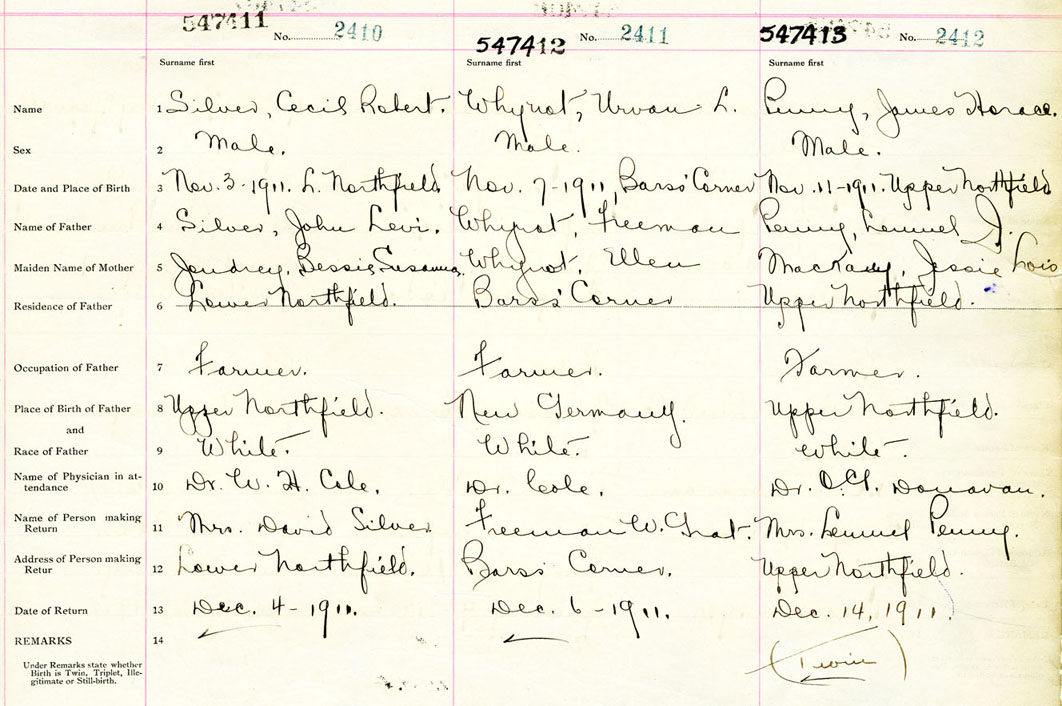 547411 No. 2410 547412 No. 2411 547413 No. 2412
Surname first Surname first Surname first
Name 1 Silver, Cecil Robert. Whynot, Urvan L. Penny, James Horace.
Sex 2 Male. Male. Male.
Date and Place of Birth 3 Nov. 3-1911. L. Northfield Nov. 7-1911, Barss' Corner Nov. 11-1911. Upper Northfield
Name of Father 4 Silver, John Levi. Whynot, Freeman Penny, Lemuel J.
Maiden Name of Mother 5 Joudrey, Bessie Susanna. Whynot, Ellen Jessie Lois
Residence of Father 6 Lower Northfield. Barss' Corner Upper Northfield.
Occupation of Father 7 Farmer. Farmer. Farmer.
Place of Birth of Father 8 Upper Northfield. New Germany. Upper Northfield.
and
Race of Father 9 White. White. White.
Name of Physician in at-
tendance 10 Dr. W. H. Cole. Dr. Cole. Dr. Donovan.
Name of Person making
Return 11 Mrs. David Silver Freeman W. Mrs. Lemuel Penny.
Address of Person making
Retur 12 Lower Northfield. Barss' Corner. Upper Northfield.
Date of Return 13 Dec. 4-1911. Dec. 6-1911. Dec. 14, 1911.
REMARKS 14
(Twin)
Under Remarks state whether
Birth is Twin, Triplet, Ille-
gitimate or Still-birth.